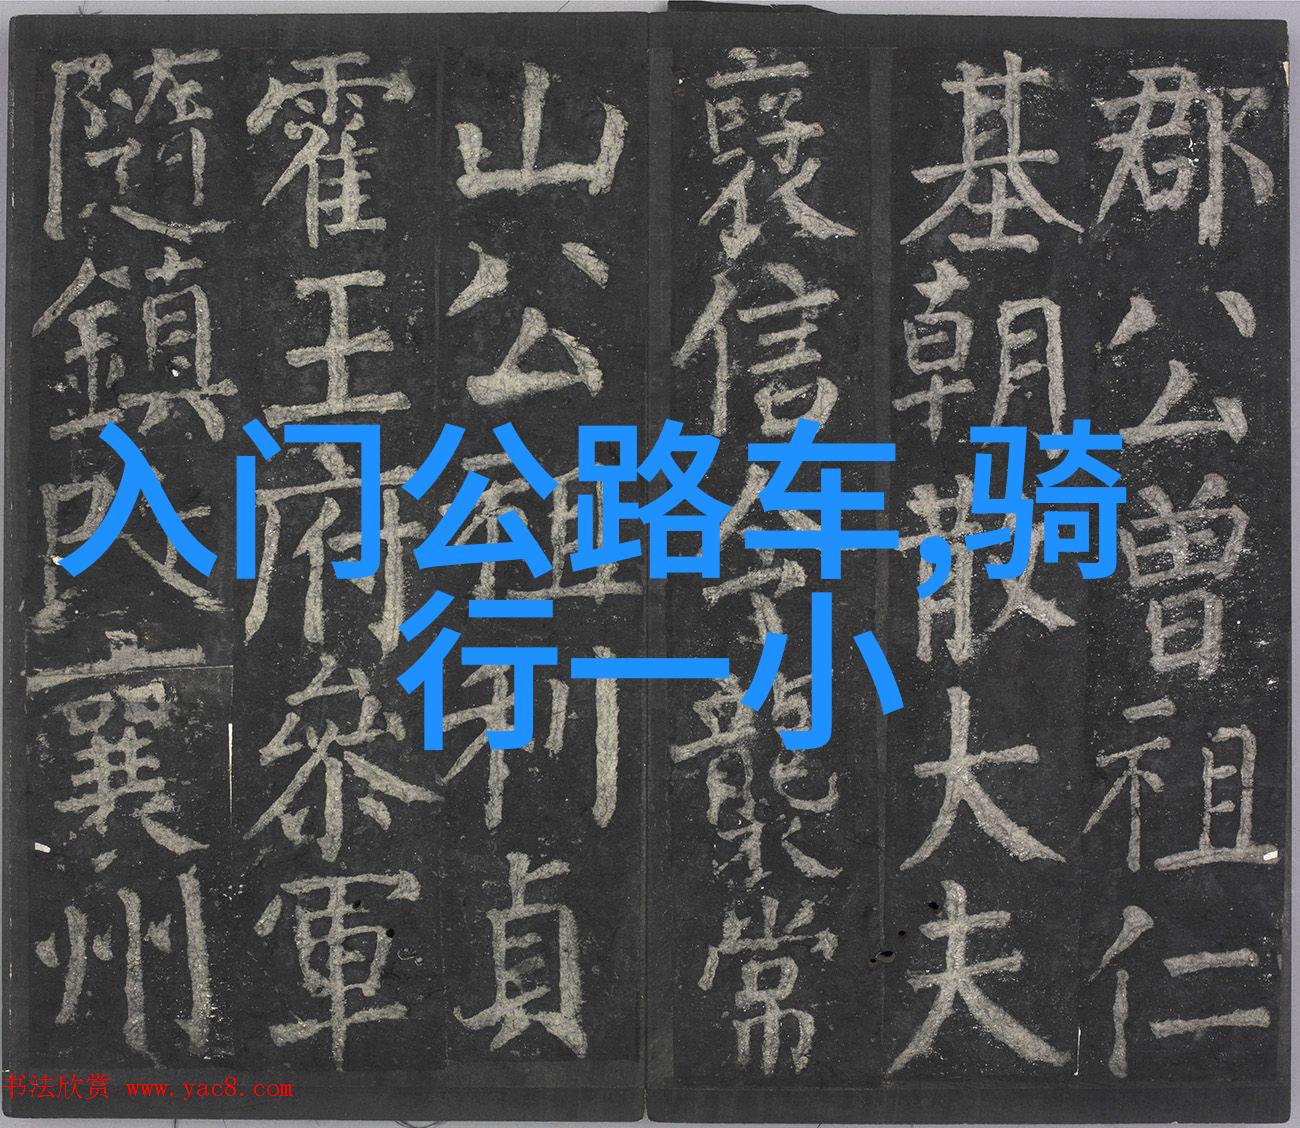 郡公曾祖仁
基朝散大夫
襃信公襲常
山公祖利貞
霍王府叅軍
隨鎮安襄州
入门公路车,骑
行一小
书法欣赏 www.yac8.com